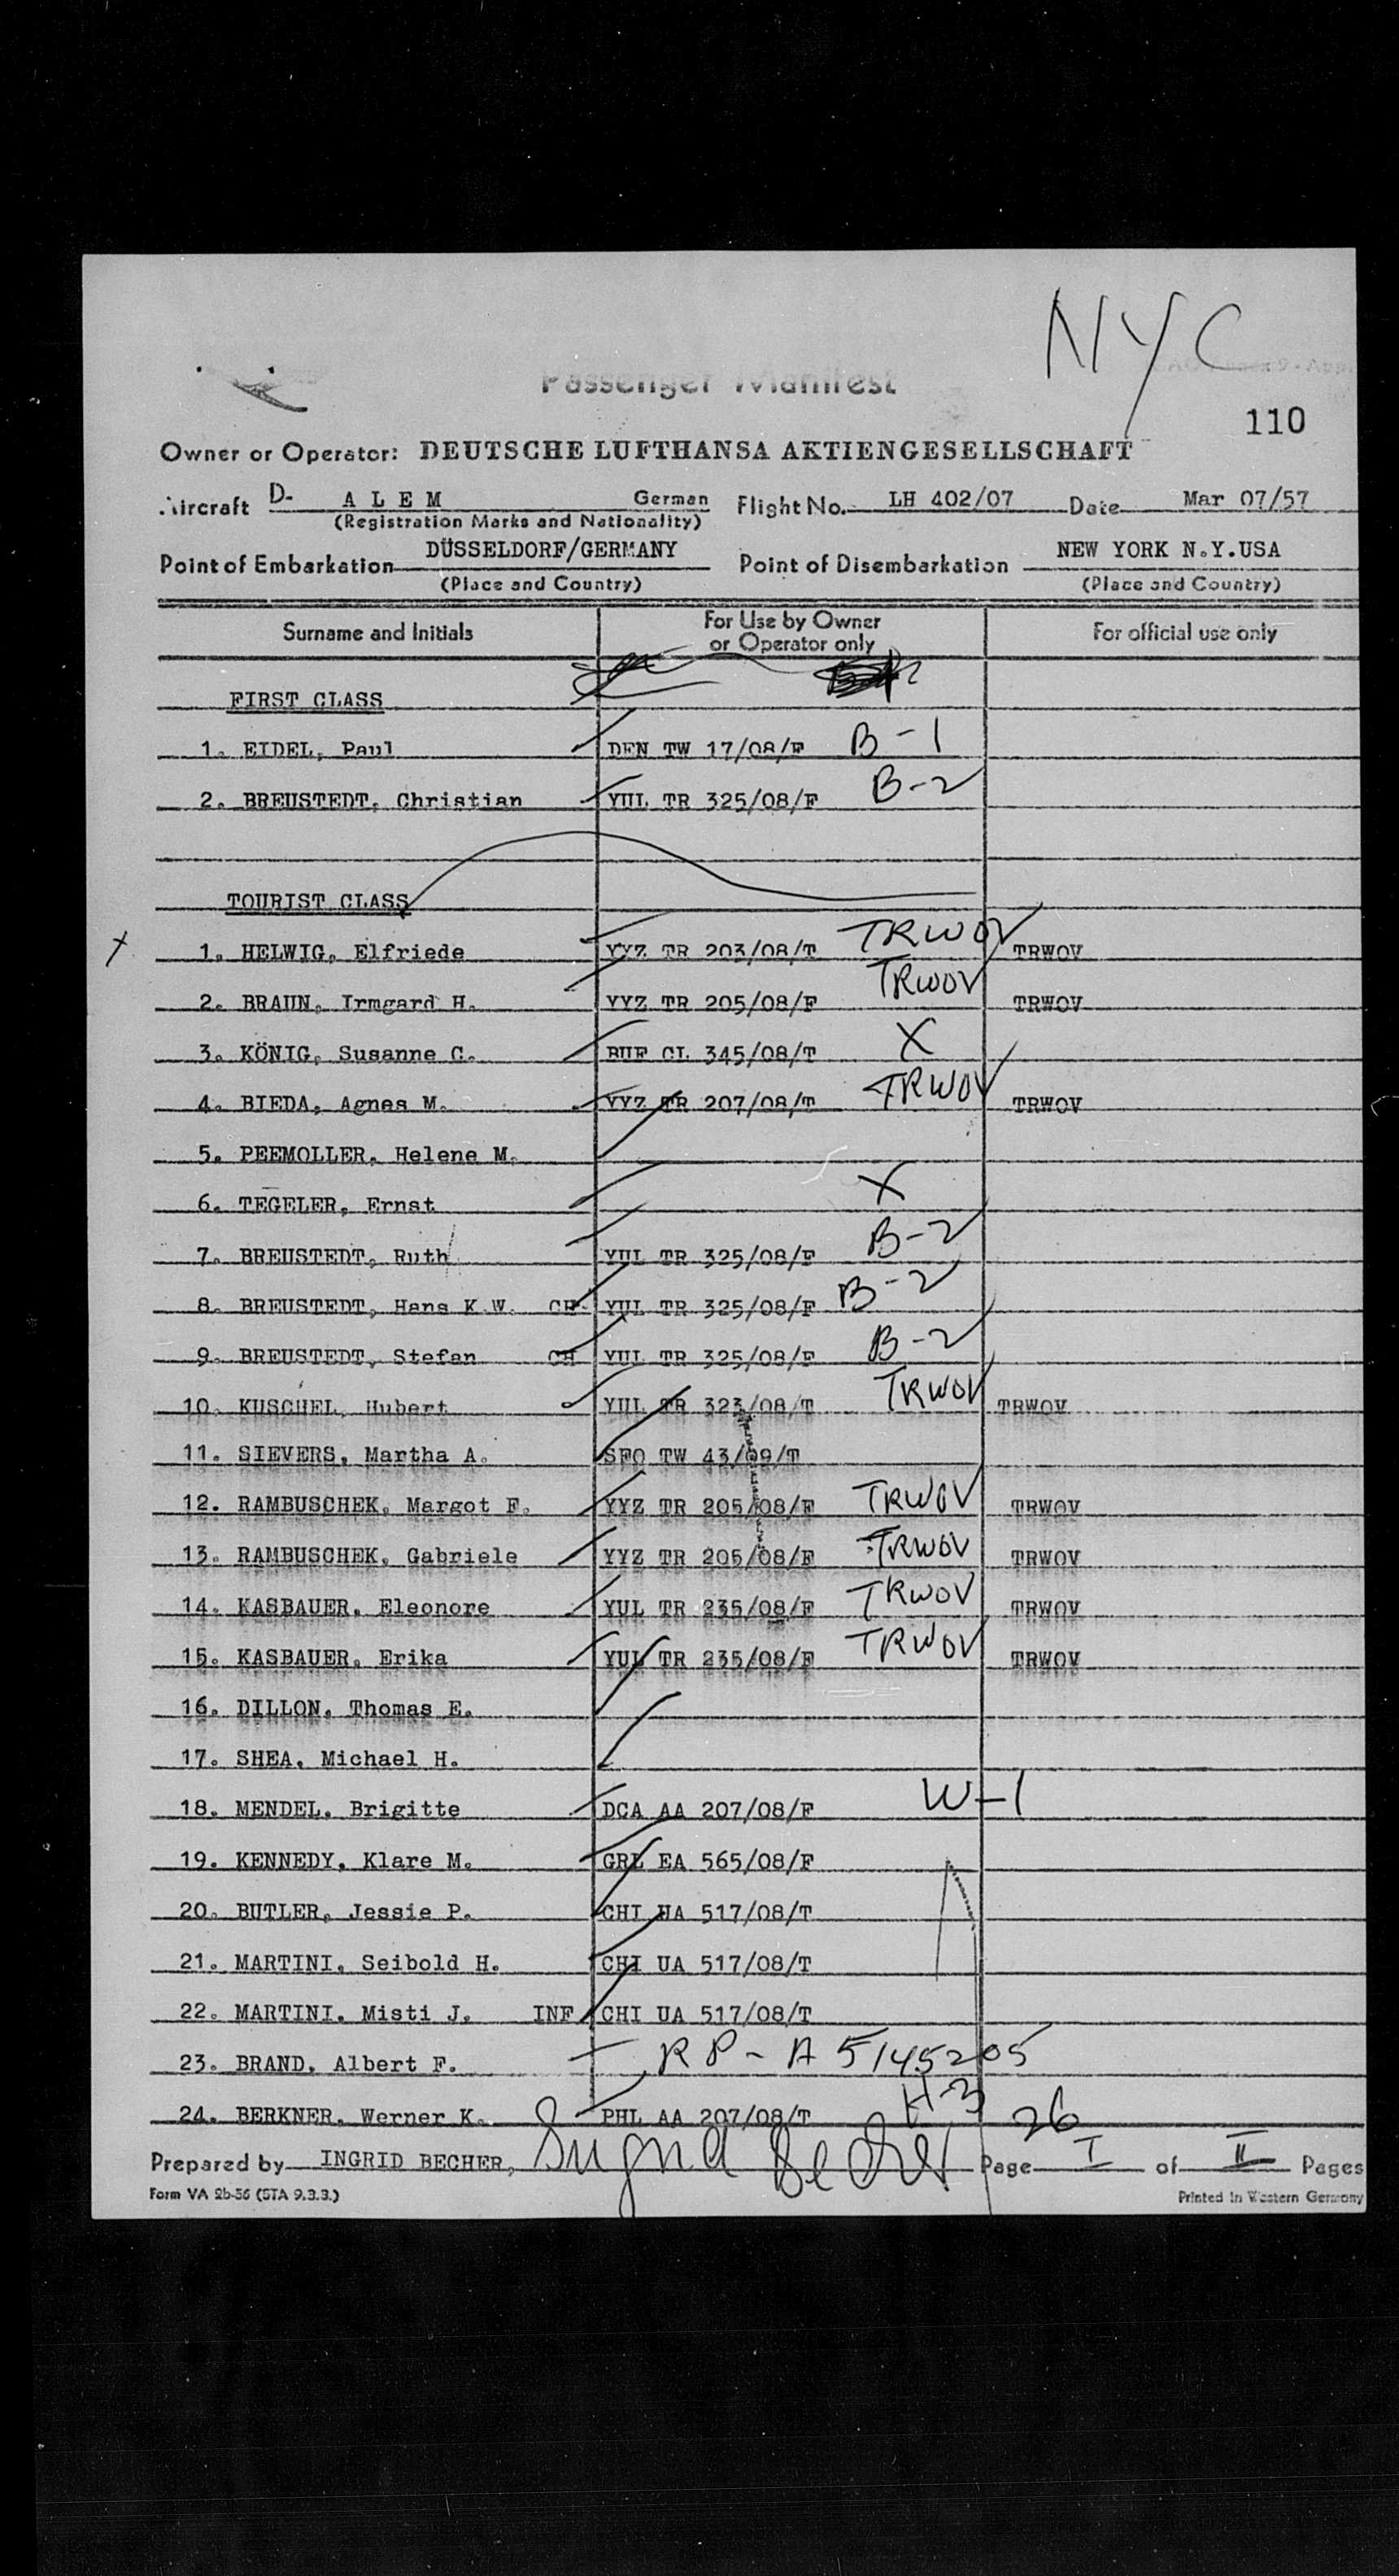 NYC
Passenger Manifest
110
Owner or Operator: DEUTSCHE LUFTHANSA AKTIENGESELLSCHAFT
Aircraft D- A L E M German Flight No. LH 402/07 Date Mar 07/57
(Registration Marks and Nationality)
Point of Embarkation DÜSSELDORF/GERMANY Point of Disembarkation NEW YORK N.Y.USA
(Place and Country) (Place and Country)
Surname and Initials For Use by Owner or Operator only For official use only
FIRST CLASS
1. EIDEL, Paul DEN TW 17/08/F B-1
2. BREUSTEDT, Christian YUL TR 325/08/F B-2
TOURIST CLASS
1. HELWIG, Elfriede YYZ TR 203/08/T TRWOV TRWOV
2. BRAUN, Irmgard H. YYZ TR 205/08/F TRWOV TRWOV
3. KÖNIG, Susanne C. BUF CL 345/08/T X
4. BIEDA, Agnes M. YYZ TR 207/08/T TRWOV TRWOV
5. PEEMOLLER, Helene M.
6. TEGELER, Ernst X
7. BREUSTEDT, Ruth YUL TR 325/08/F B-2
8. BREUSTEDT, Hans K.W. CH YUL TR 325/08/F B-2
9. BREUSTEDT, Stefan CH YUL TR 325/08/F B-2
10. KUSCHEL, Hubert YUL TR 323/08/T TRWOV TRWOV
11. SIEVERS, Martha A. SFO TW 43/09/T
12. RAMBUSCHEK, Margot F. YYZ TR 205/08/F TRWOV TRWOV
13. RAMBUSCHEK, Gabriele YYZ TR 205/08/F TRWOV TRWOV
14. KASBAUER, Eleonore YUL TR 235/08/F TRWOV TRWOV
15. KASBAUER, Erika YUL TR 235/08/F TRWOV TRWOV
16. DILLON, Thomas E.
17. SHEA, Michael H.
18. MENDEL, Brigitte DCA AA 207/08/F W-1
19. KENNEDY, Klare M. GRL EA 565/08/F
20. BUTLER, Jessie P. CHI UA 517/08/T
21. MARTINI, Seibold H. CHI UA 517/08/T
22. MARTINI, Misti J. INF CHI UA 517/08/T
23. BRAND, Albert F. RP-A 5145205
24. BERKNER, Werner K. PHL AA 207/08/T H-3 26
Prepared by INGRID BECHER, Ingrid Becher Page I of II Pages
Form VA 2b-56 (STA 9.3.3.) Printed in Western Germany